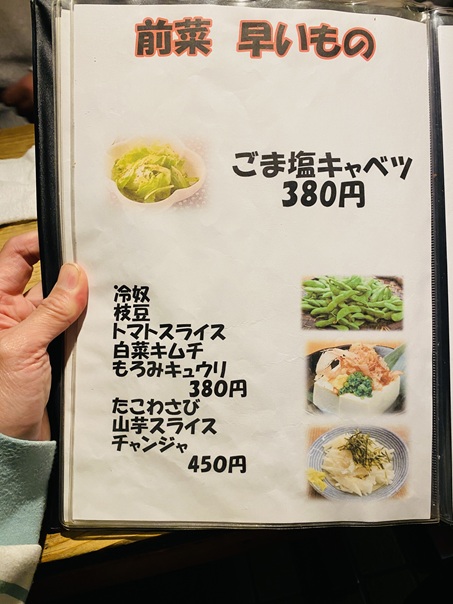 前菜 早いもの
ごま塩キャベツ
380円
冷奴
枝豆
トマトスライス
白菜キムチ
もろみキュウリ
380円
たこわさび
山芋スライス
チャンジャ
450円